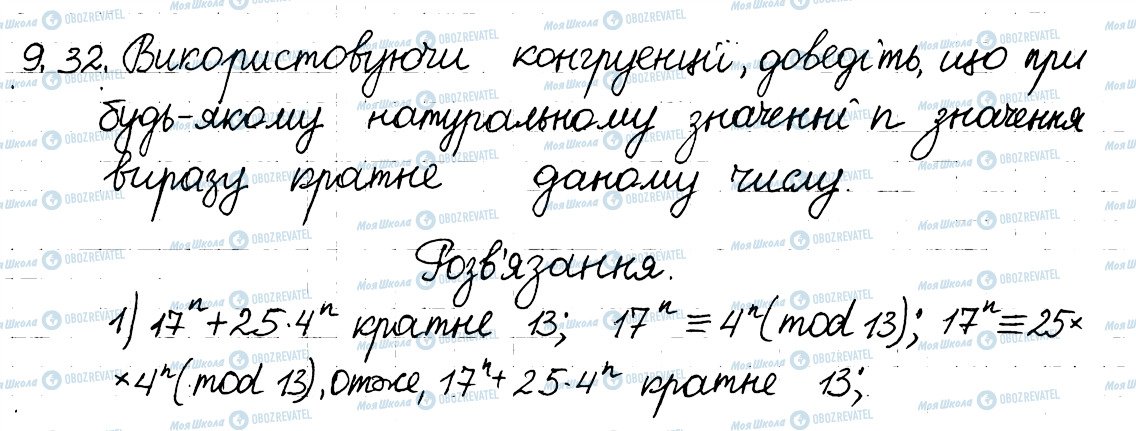 9.32. Використовуючи конгруенції, доведіть, що при
будь-якому натуральному значенні n значення
виразу кратне даному числу.
Розв'язання.
1) 17ⁿ + 25·4ⁿ кратне 13; 17ⁿ ≡ 4ⁿ (mod 13); 17ⁿ ≡ 25×
×4ⁿ (mod 13), отже, 17ⁿ + 25·4ⁿ кратне 13;